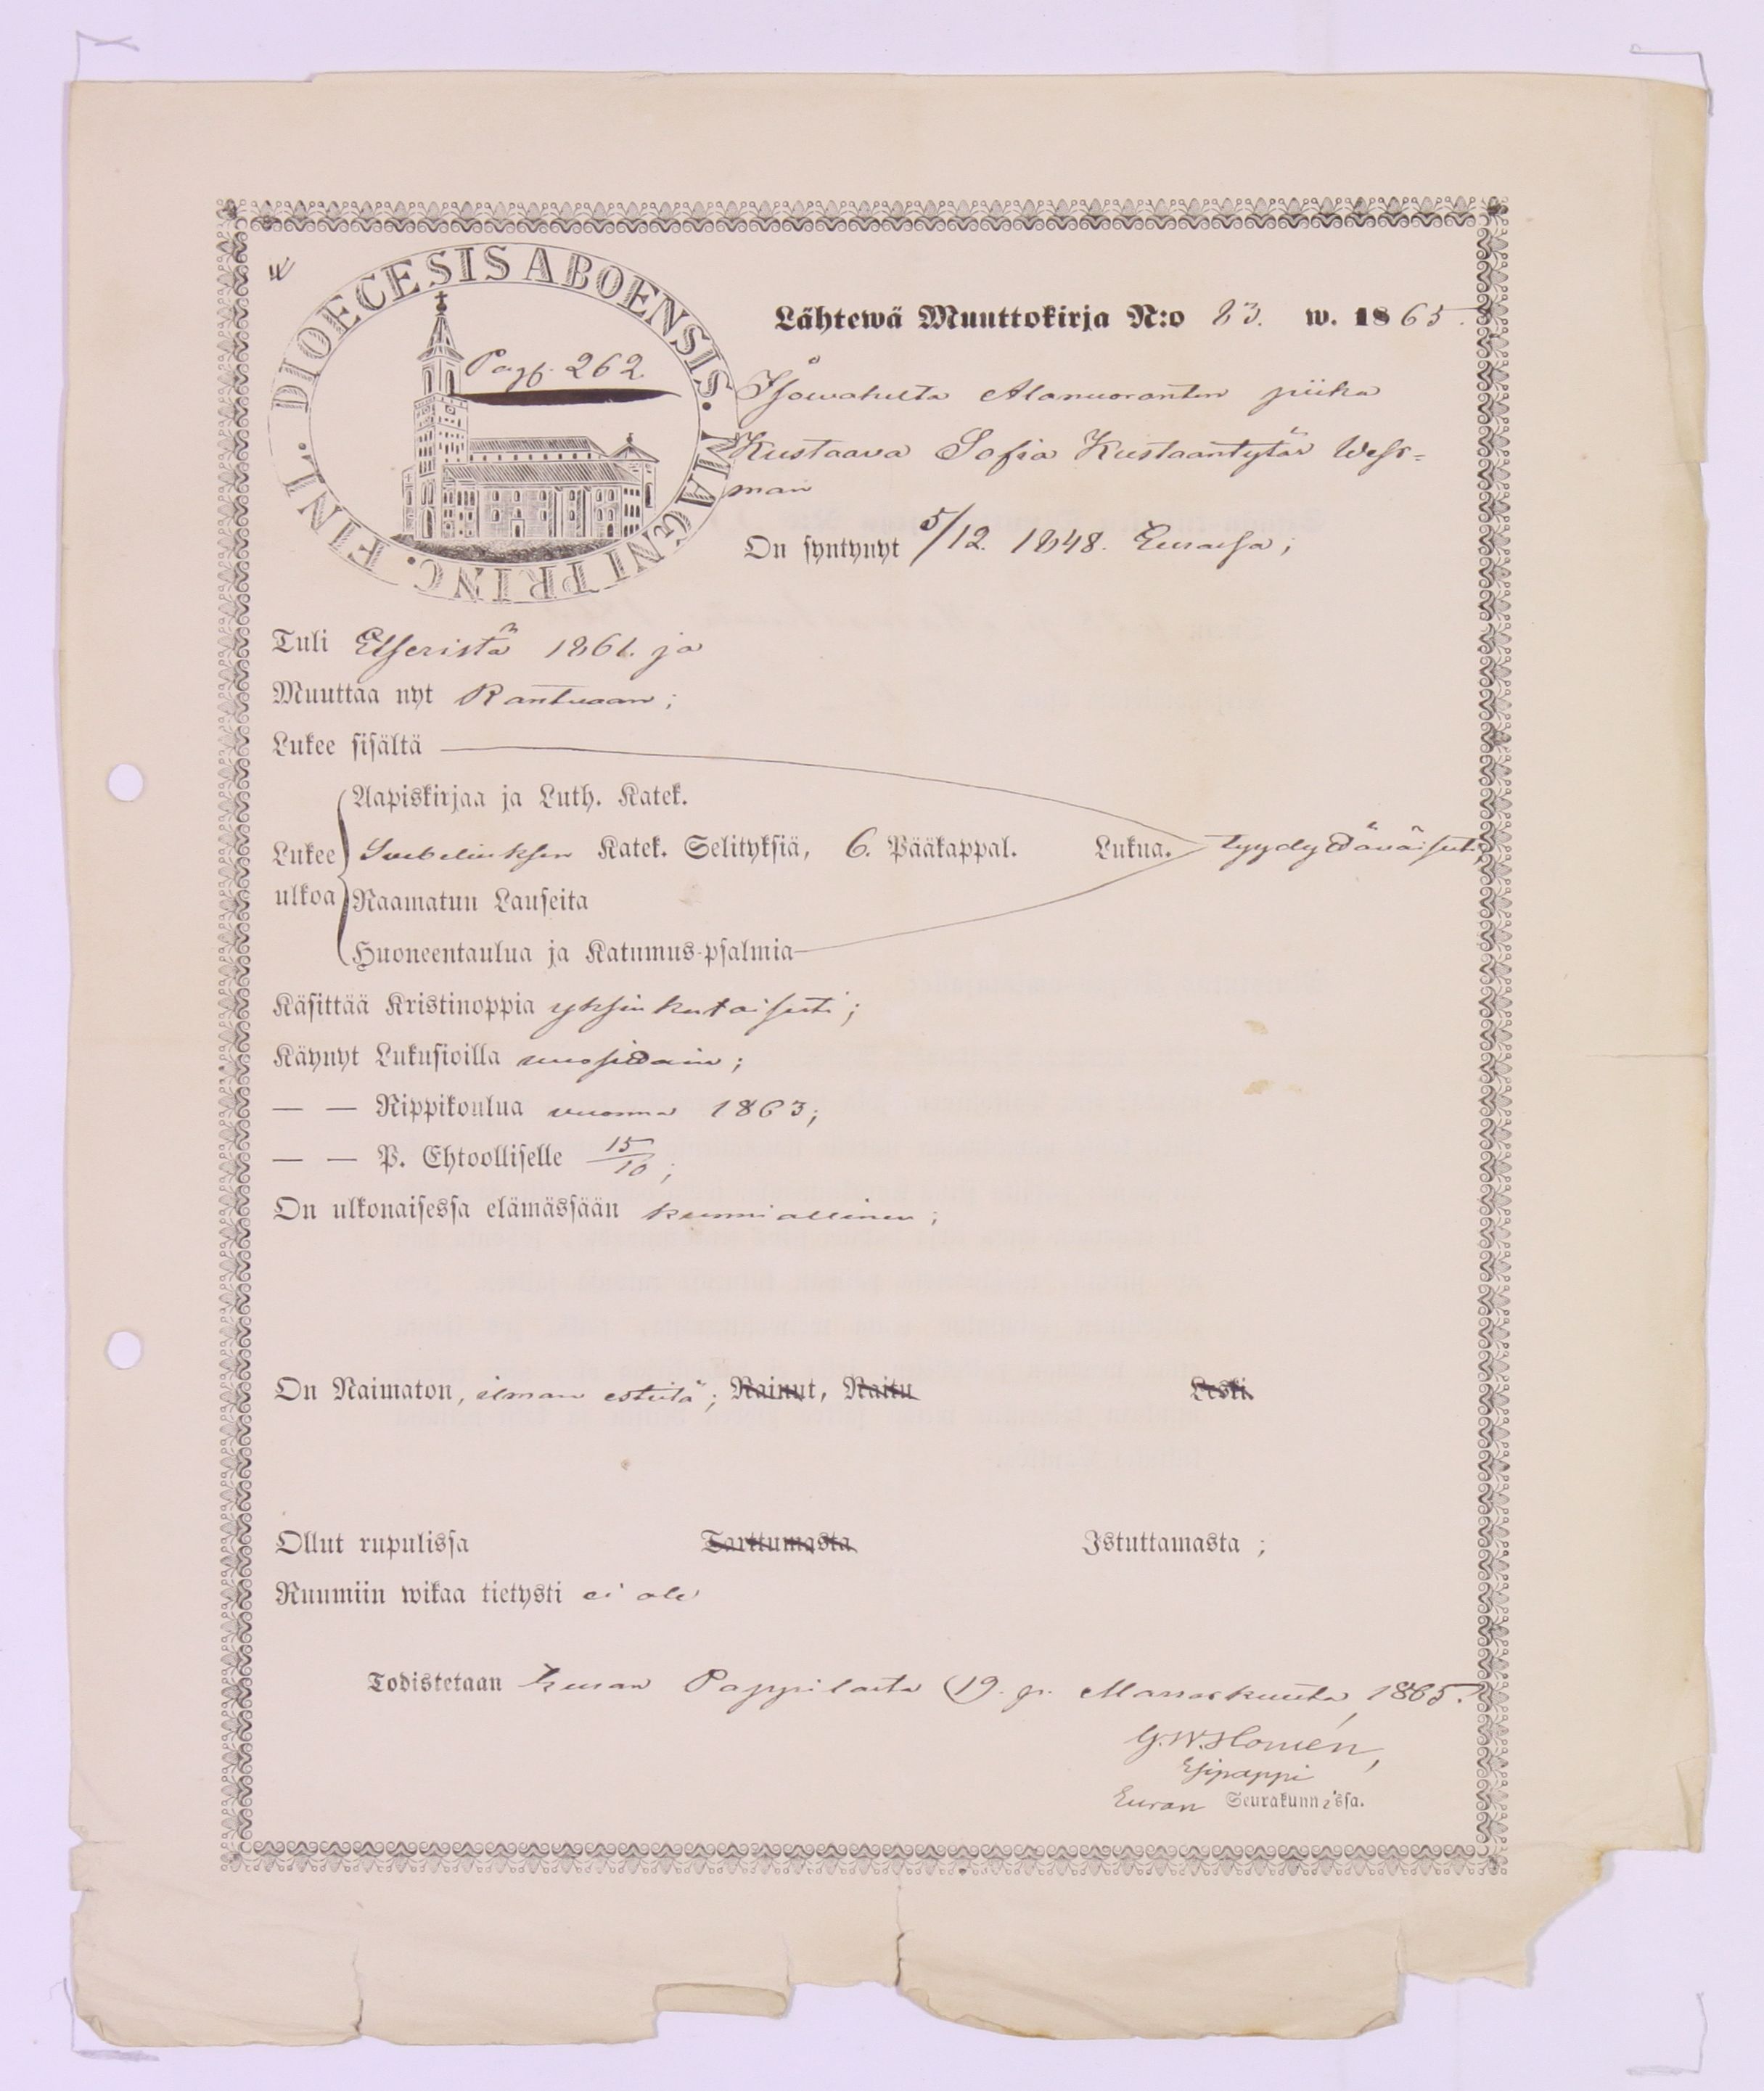 DIOECESIS ABOENSIS. MAGNI PRINC. FINL.
Pag. 262.
Lähtewä Muuttokirja N:o 83. w. 1865.
Isowahelta Alanuorantin piika
Kustaava Sofia Kustaantytär West-
man
On syntynyt 5/12. 1848. Eurassa;
Tuli 1861. ja
Muuttaa nyt Rantuaan;
Lukee sisältä
Aapiskirjaa ja Luth. Katek.
Lukee Svebeliuksen Katek. Selityksiä, 6. Pääkappal. Lukua. tyydyttäväisesti,
ulkoa Raamatun Lauseita
Huoneentaulua ja Katumus-psalmia
Käsittää Kristinoppia yksinkertaisesti;
Käynyt Lukusioilla vuosittain;
— — Rippikoulua vuonna 1863;
— — P. Ehtoolliselle 15/10;
On ulkonaisessa elämässään kunniallinen;
On Naimaton, ilman estettä; Nainut, Naitu Leski.
Ollut rupulissa Tarttumasta Istuttamasta;
Ruumiin wikaa tietysti ei ole
Todistetaan Euran Pappilasta 19. p. Marraskuuta, 1865.
G. W. Homén,
Esipappi
Euran Seurakunnissa.